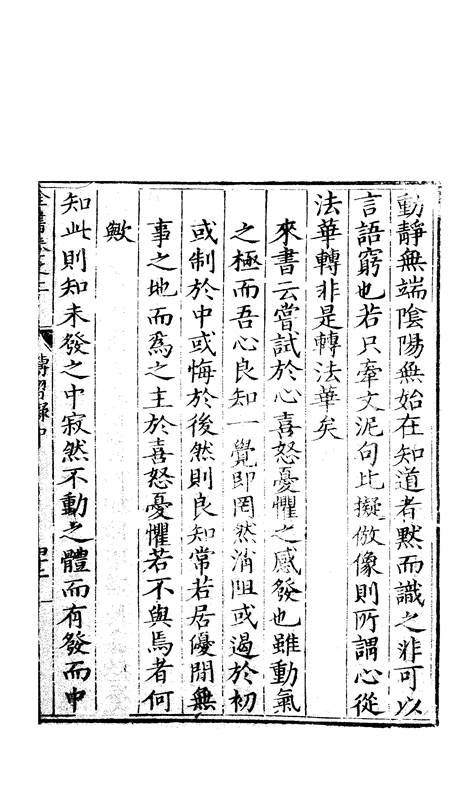 動靜無端陰陽無始在知道者默而識之非可以
言語窮也若只牽文泥句比擬倣像則所謂心從
法華轉非是轉法華矣
來書云嘗試於心喜怒憂懼之感發也雖動氣
之極而吾心良知一覺即罔然消阻或遏於初
或制於中或悔於後然則良知常若居優閒無
事之地而爲之主於喜怒憂懼若不與焉者何
歟
知此則知未發之中寂然不動之體而有發而中
全書卷之二
傳習錄中